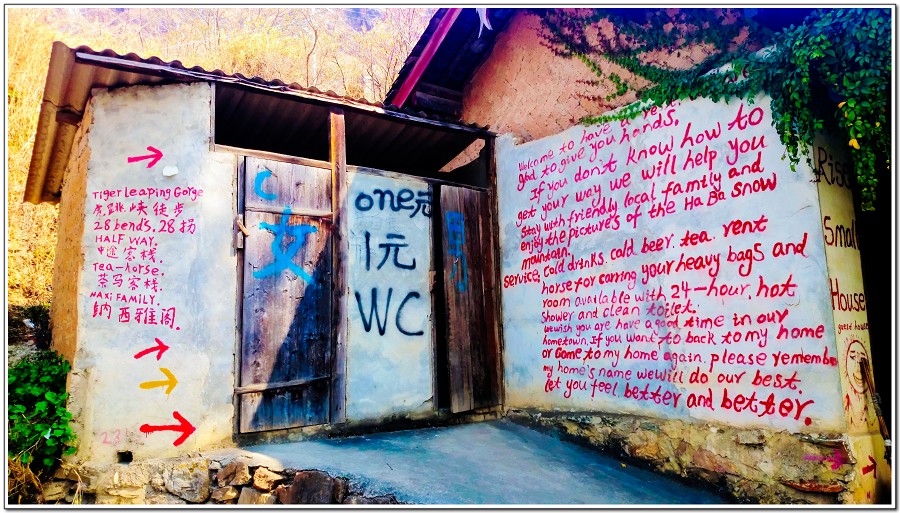 Tiger Leaping Gorge
虎跳峡徒步
28 bends. 28拐
HALF WAY.
中途客栈.
Tea-horse.
茶马客栈.
NAXi FAMILY.
纳西雅阁.
女
one元
1元
WC
男
Welcome to have a re
glad to give you hands.
If you don't know how to
get your way we will help you
Stay with friendly local family and
enjoy the pictures of the HaBa snow
maintain.
service. cold drinks. cold beer. tea. rent
horse for carring your heavy bags and
room available with 24-hour. hot
shower and clean toilet.
we wish you are have a good time in our
hometown. If you want to back to my home
or come to my home again. please remember
my home's name we will do our best.
let you feel better and better.
Small
House
guest house